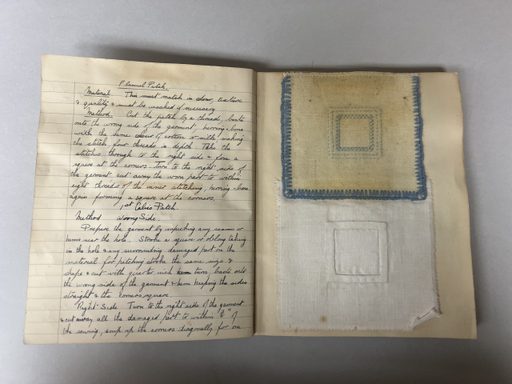 Flannel Patch.
Material. This must match in colour, texture
& quality & must be washed if necessary
Method. Cut the patch by a thread, baste
onto the wrong side of the garment, herring-bone
with the same colour of cotton or silk making
the stitch four threads in depth. Take the
stitches through to the right side & form a
square at the corners. Turn to the right side of
the garment cut away the worn part to within
eight threads of the inner stitching, herring-bone
again forming a square at the corners.
Calico Patch.
Method Wrong Side.
Prepare the garment by unpicking any seams or
hems near the hole. a square or oblong taking
in the hole & any surrounding damaged part in the
material for patching the same size &
shape & cut with quarter inch turn, baste onto
the wrong side of the garment & hem keeping the sides
straight & the corners square.
Right-Side. Turn to the right side of the garment
& cut away all the damaged part to within of
the sewing, snip up the corners diagonally for one